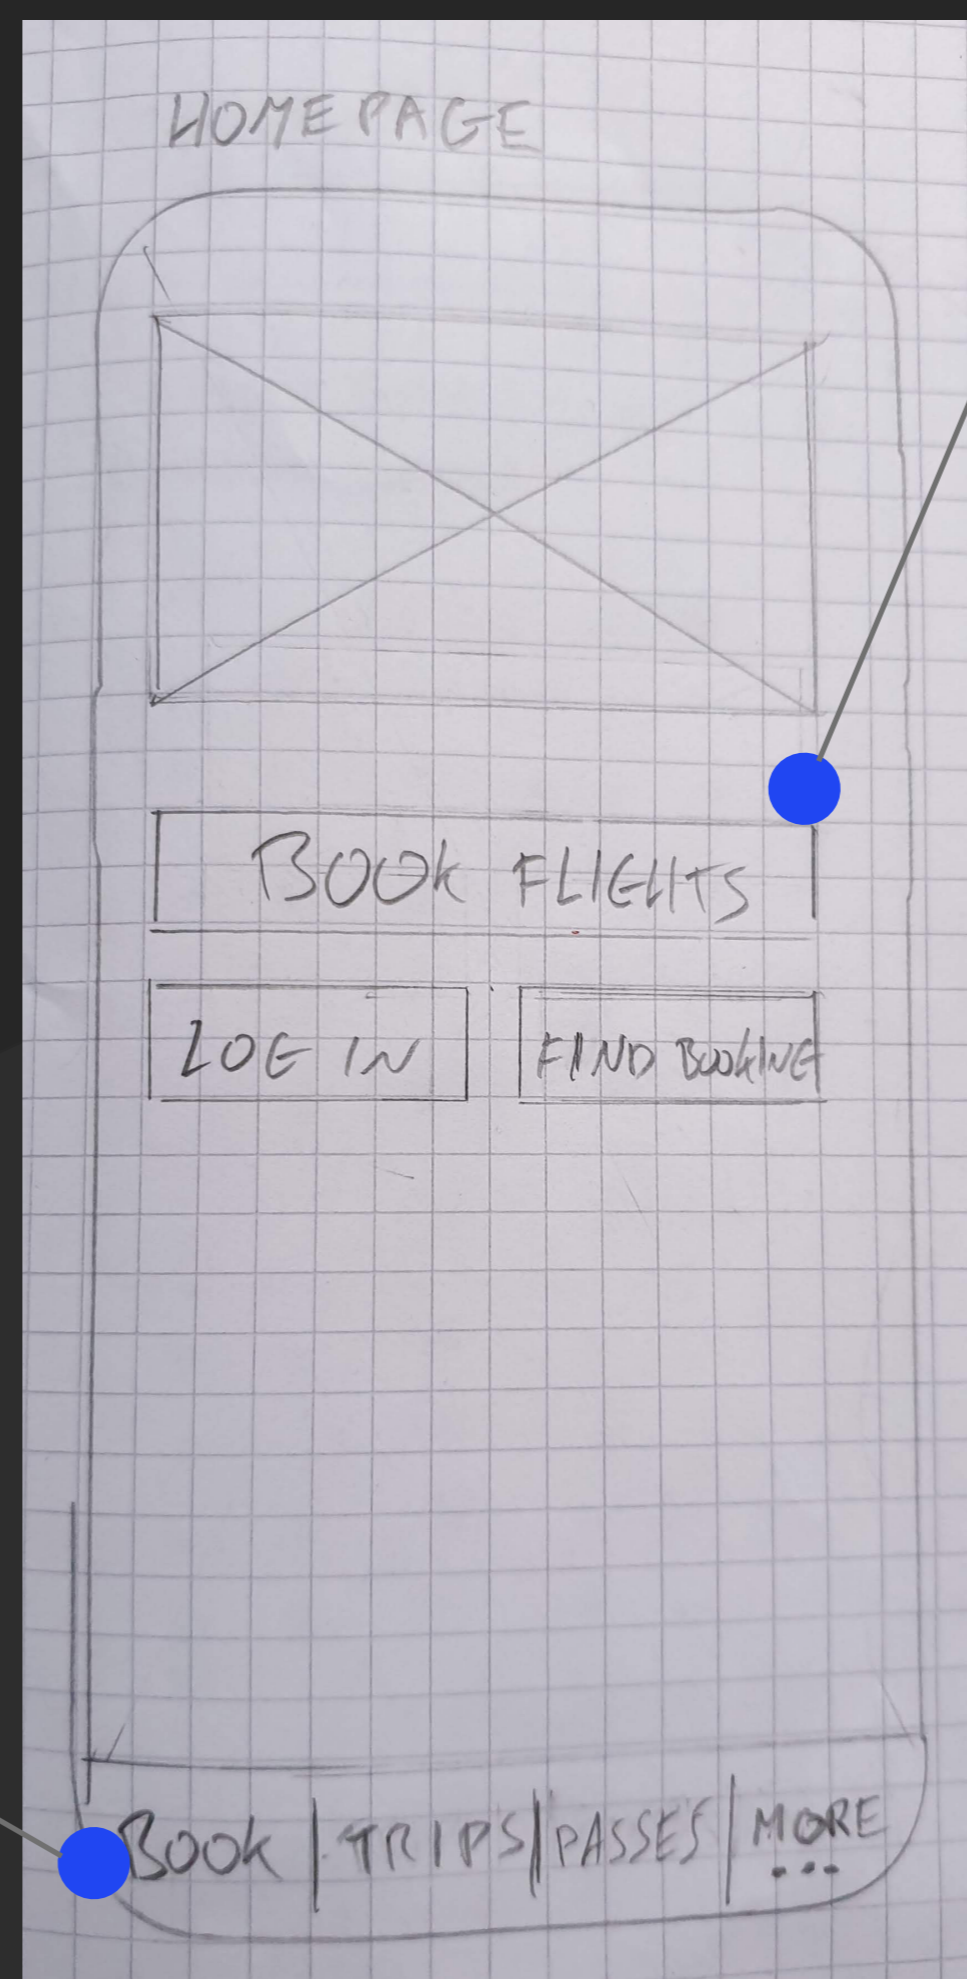 HOMEPAGE
BOOK FLIGHTS
LOG IN
FIND BOOKING
BOOK | TRIPS | PASSES | MORE
...